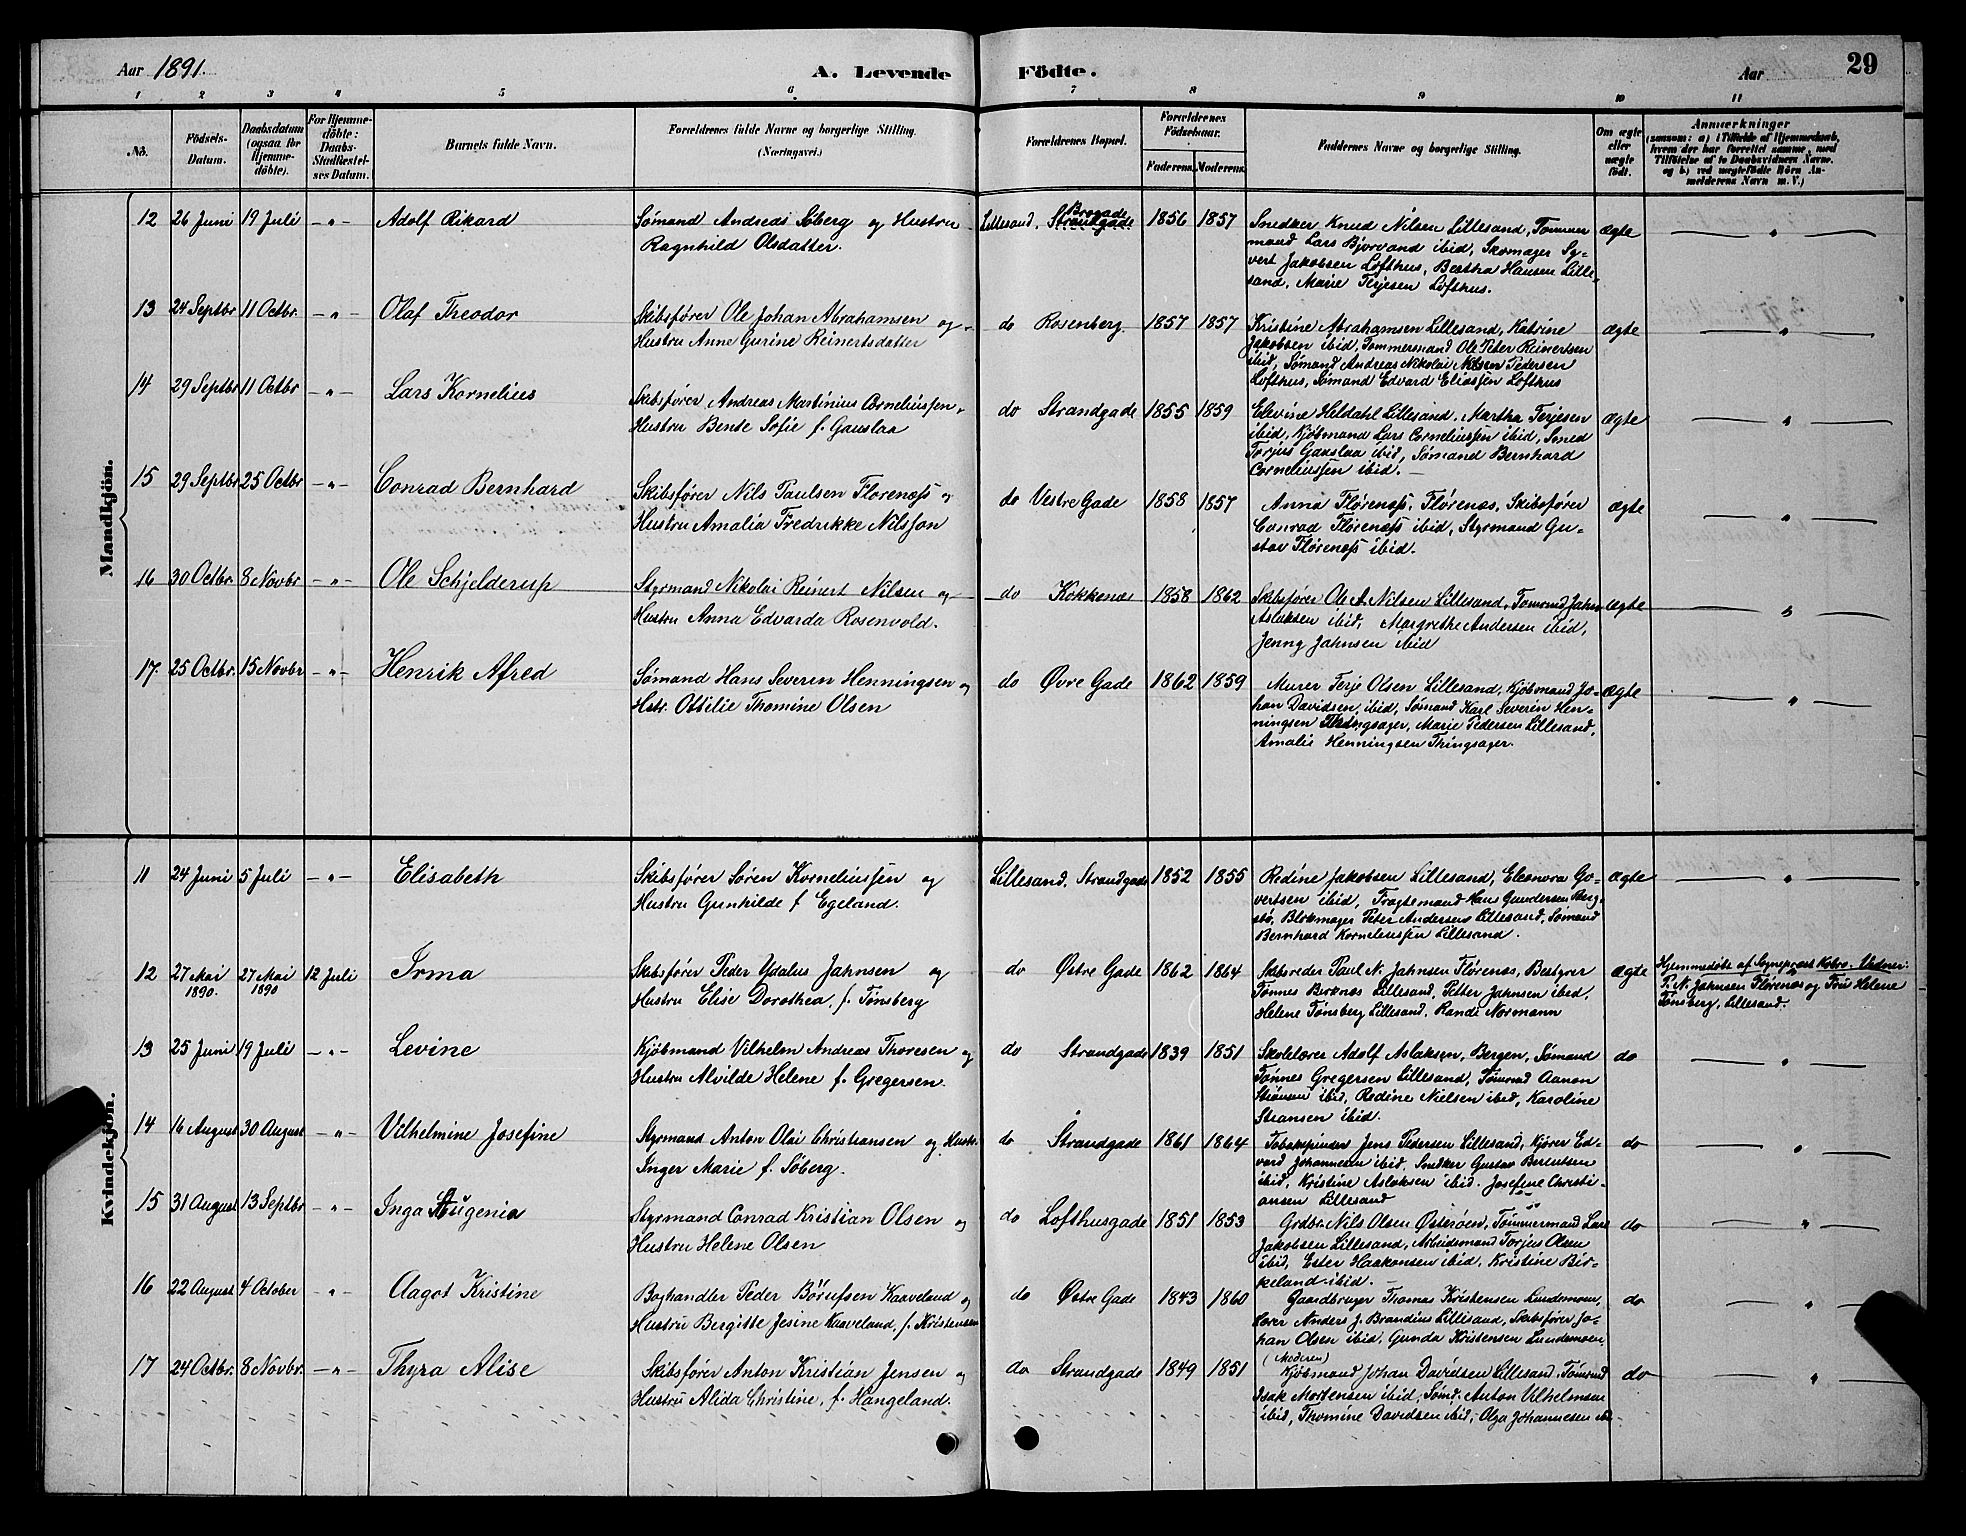 Aar 1891.
A. Levende Födte.
Aar
29
1 2 3 4 5 6 7 8 9 10 11
No.
Födsels-
Datum.
Daabsdatum
(ogsaa for
Hjemme-
döbte).
For Hjemme-
döbte:
Daabs-
Stadfæstel-
ses Datum.
Barnets fulde Navn.
Forældrenes fulde Navne og borgerlige Stilling.
(Næringsvei.)
Forældrenes Bopæl.
Forældrenes
Födselsaar.
Faderens. Moderens.
Faddernes Navne og borgerlige Stilling.
Om ægte
eller
uægte
födt.
Anmærkninger
(saasom: a) i Tilfælde af Hjemmedaab,
hvem der har forrettet samme, med
Tilföielse af to Daabsvidners Navne.
og b) ved uægtefödte Börn An-
melderens Navn m. V.)
Mandkjön.
12 26 Juni 19 Juli -"- Adolf Rikard
Sømand Andreas Søberg og Hustru
Ragnhild Olsdatter.
Lillesand, Strandgade Brogade 1856 1857
Snedker Knud Nilsen Lillesand, Tømmer
mand Lars Bjorvand ibid, Skomager Sy-
vert Jakobsen Lofthus, Bertha Hansen Lille-
sand, Marie Terjesen Lofthus.
ægte "
13 24 Septbr 11 Octbr -"- Olaf Theodor
Skibsfører Ole Johan Abrahamsen og
Hustru Anne Gurine Reinertsdatter
do Rosenberg. 1857 1857
Kristine Abrahamsen Lillesand, Katrine
Jakobsen ibid, Tømmermand Ole Peter Reinertsen
ibid, Sømand Andreas Nikolai Nilsen Pedersen
Lofthus, Sømand Edvard Eliassen Lofthus
ægte "
14 29 Septbr 11 Octbr -"- Lars Kornelius
Skibsfører Andreas Martinius Corneliussen
Hustru Bende Sofie f. Gauslaa
do Strandgade 1855 1859
Elevine Heldahl Lillesand. Martha Terjesen
ibid, Kjøbmand Lars Corneliussen ibid, Smed
Torjus Gauslaa ibid, Sømand Bernhard
Corneliussen ibid.
ægte "
15 29 Septbr 25 Octbr -"- Conrad Bernhard
Skibsfører Nils Paulsen Florenæss og
Hustru Amalia Fredrikke Nilsson
do Vestre Gade 1858 1857
Anna Flørenæss, Flørenæs, Skibsfører
Conrad Flørenæss ibid, Styrmand Gu-
stav Flørenæss ibid.
ægte "
16 30 Octbr. 8 Novbr -"- Ole Schjelderup
Styrmand Nikolai Reinert Nilsen og
Hustru Anna Edvarda Rosenvold.
do Kokkenæs 1858 1862
Skibsfører Ole A. Nilsen Lillesand, Tømmd Jahn
Aslaksen ibid, Margrethe Andersen ibid,
Jenny Jahnsen ibid
ægte "
17. 25 Octbr. 15 Novbr -"- Henrik Afred
Sømand Hans Severin Henningsen og
Hstr. Ottilie Thomine Olsen
do Øvre Gade 1862 1859
Murer Terje Olsen Lillesand, Kjøbmand Jo-
han Davidsen, ibid, Sømand Karl Severin Hen-
ningsen Thingsager, Marie Pedersen Lillesand,
Amalie Henningsen Thingsager.
ægte "
Kvindekjön.
11 24 Juni 5 Juli -"- Elisabeth
Skibsfører Søren Korneliussen og
Hustru Gunhilde f Egeland.
Lillesand. Strandgade 1852 1855
Redine Jakobsen Lillesand, Eleonora Go-
vertsen ibid, Fragtemand Hans Gundersen Berg-
stø, Blokmager Peter Andersen Lillesand, Sømand
Bernhard Korneliussen Lillesand.
ægte "
12 27 Mai 1890. 27 Mai 1890 12 Juli Irma
Skibsfører Peder Ydalus Jahnsen og
Hustru Elise Dorothea, f. Tønsberg
do Østre Gade 1862 1864
Skibsreder Paul N. Jahnsen Flørenæs, Bestyrer
Tønnes Birknæs Lillesand, Petter Jahnsen ibid,
Helene Tønsberg Lillesand, Randi Normann
ægte
Hjemmedøbt af Sognepræst Vidner:
P. N. Jahnsen Flørenæs og Fru Helene
Tønsberg, Lillesand.
13 25 Juni 19 Juli -"- Levine
Kjøbmand Vilhelm Andreas Thoresen og
Hustru Alvilde Helene f. Gregersen.
do Strandgade 1839 1851
Skolelærer Adolf Aslaksen, Bergen, Sømand
Tønnes Gregersen Lillesand, Tømmd Aanon
ibid, Redine Nielsen ibid, Karoline
Stransen ibid.
do "
14 16 August 30 August -"- Vilhelmine Josefine
Styrmand Anton Olai Christiansen og Hustr.
Inger Marie f. Søberg.
do Strandgade 1861 1864
Tobakspinder Jens Pedersen Lillesand, Kjører Ed-
vard Johannesen ibid, Snedker Gustav Berentsen
ibid, Kristine Aslaksen ibid. Josefine Christi-
ansen Lillesand
do "
15 31 August 13 Septbr -"- Inga Augenia
Styrmand Conrad Kristian Olsen og
Hustru Helene Olsen
do Lofthusgade 1851 1853
Grdbr. Nils Olsen Østerøen, Tømmermand Lars
Jakobsen Lillesand, Arbeidsmand Torjus Olsen
ibid, Ester Haakonsen ibid, Kristine Bir-
keland ibid.
do "
16 22 August 4 October -"- Aagot Kristine
Boghandler Peder Börufsen Kaaveland og
Hustru Bergitte Jesine Kaaveland, f. Kristensen
do Østre Gade 1843 1860
Gaardbruger Thomas Kristensen Lundemoen,
Lærer Anders J. Brandius Lillesand, Skibsfører Jo-
han Olsen ibid, Gunda Kristensen Lundemoen
(Moderen)
do "
17 24 Octbr. 8 Novbr. -"- Thyra Alise
Skibsfører Anton Kristian Jensen og
Hustru Alida Christine, f. Hangeland.
do Strandgade 1849 1851
Kjøbmand Johan Davidsen Lillesand, Tømmd
Isak Mortensen ibid, Sømd. Anton Vilhelmsen
ibid, Thomine Davidsen ibid, Olga Johannesen
do "